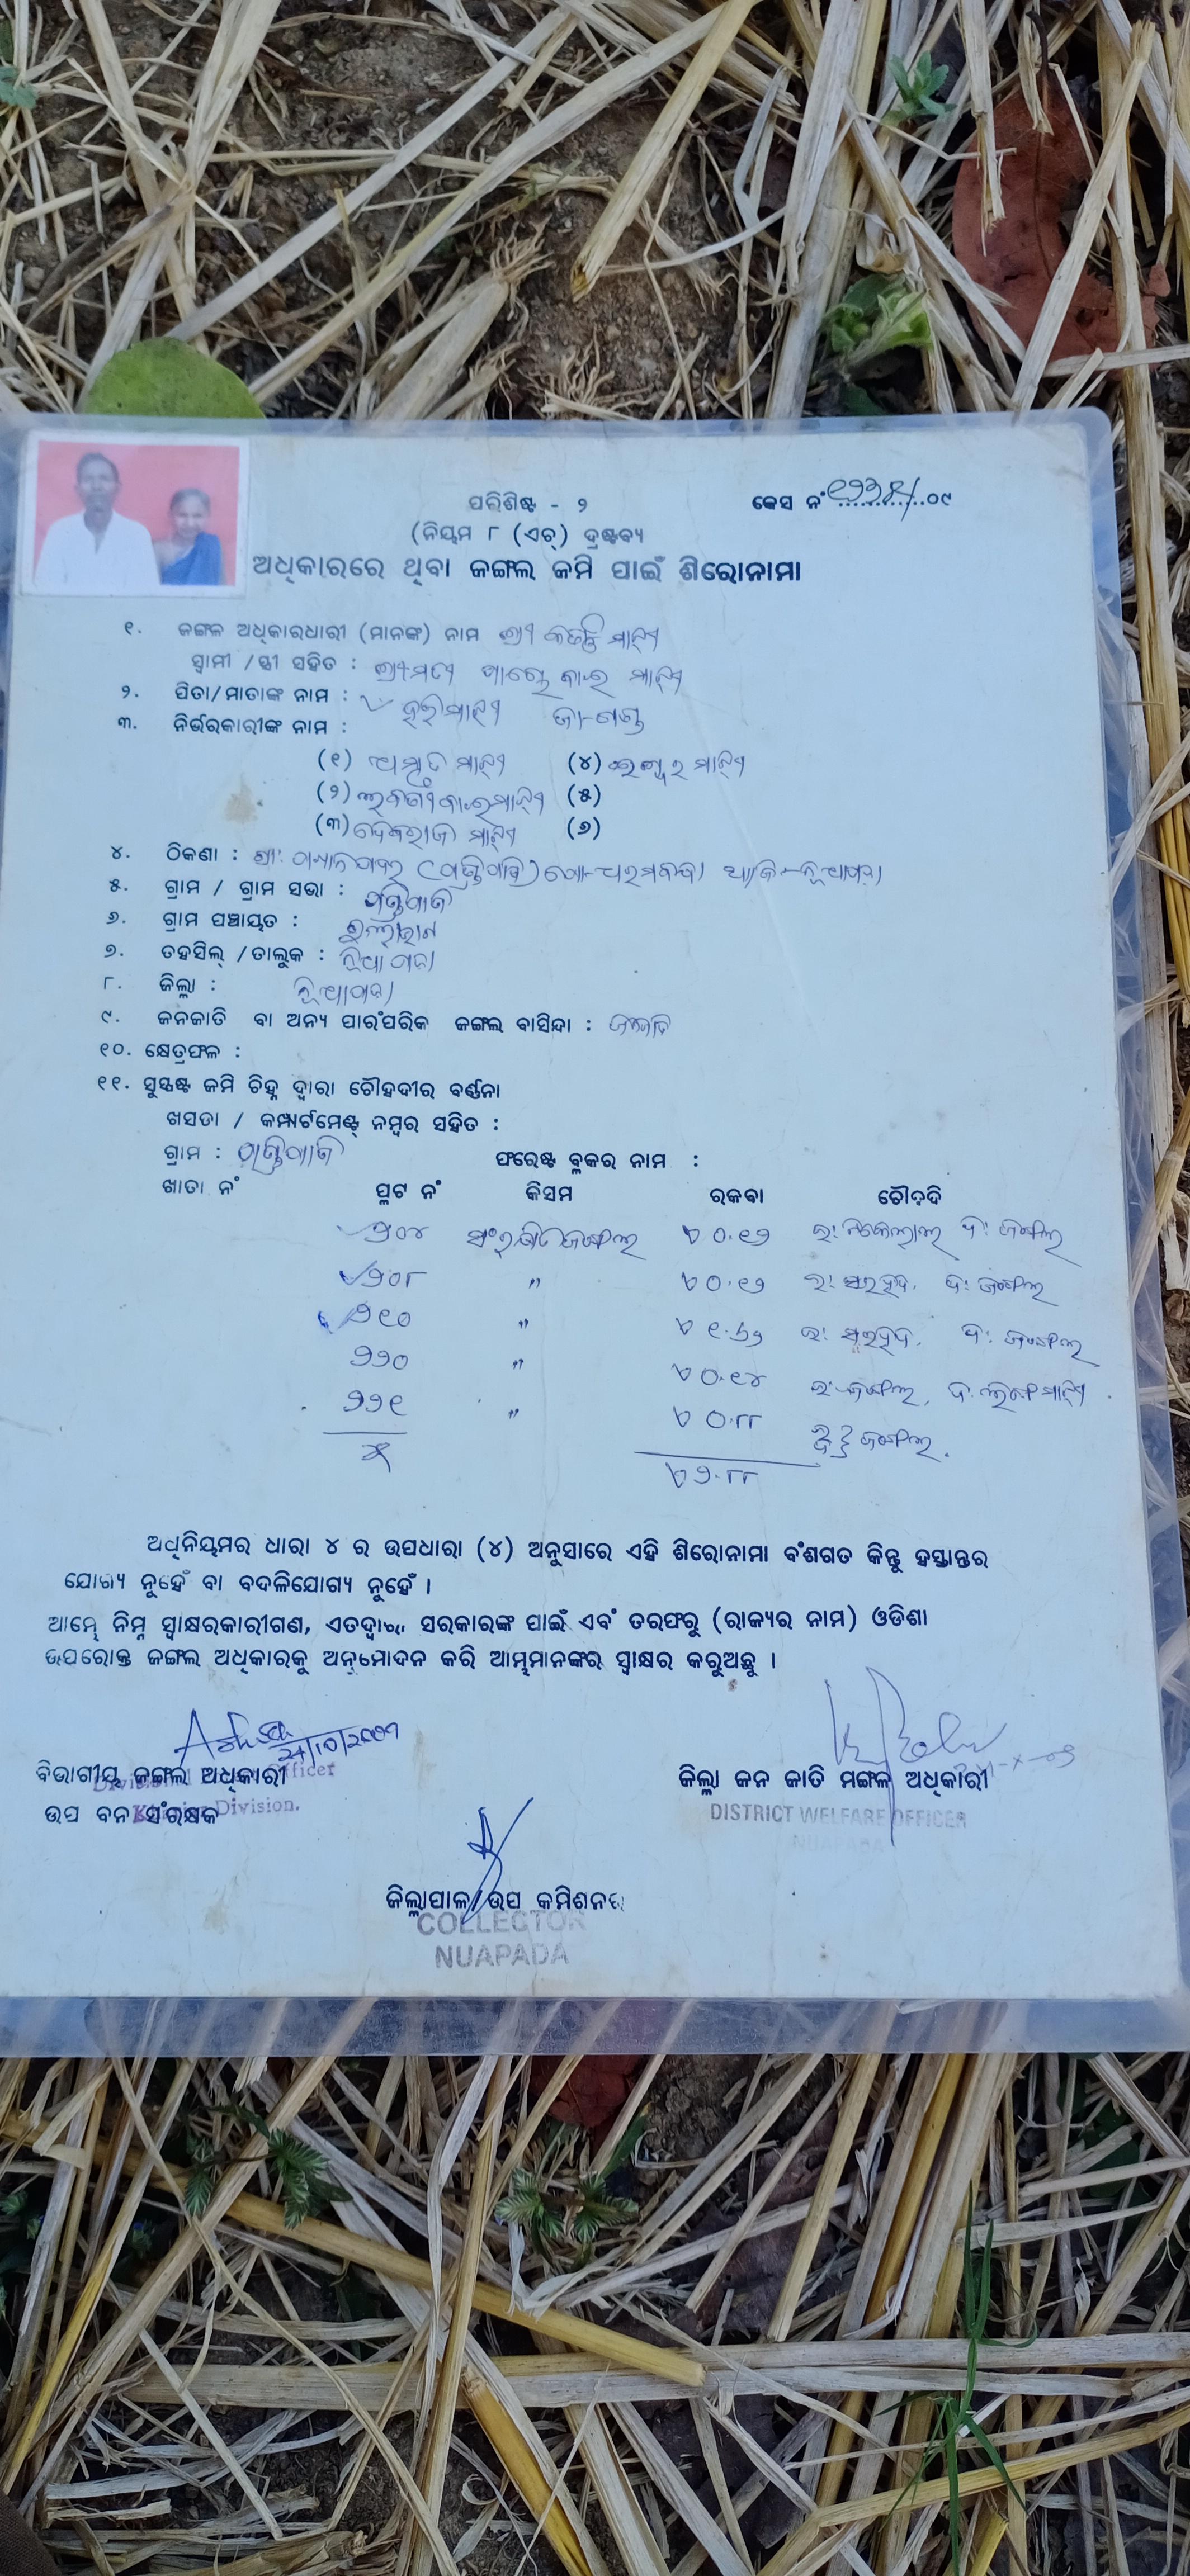 ପରିଶିଷ୍ଟ - ୨
କେସ ନଂ ............୦୯
(ନିୟମ ୮ (ଏଚ୍) ଦ୍ରଷ୍ଟବ୍ୟ
ଅଧିକାରରେ ଥିବା ଜଙ୍ଗଲ ଜମି ପାଇଁ ଶିରୋନାମା
୧. ଜଙ୍ଗଲ ଅଧିକାରଧାରୀ (ମାନଙ୍କ) ନାମ ଶ୍ରୀ ମାଝୀ
ସ୍ୱାମୀ /ସ୍ତ୍ରୀ ସହିତ : ଶ୍ରୀମତୀ ମାଝୀ
୨. ପିତା/ମାତାଙ୍କ ନାମ : ହରି ମାଝୀ ଜା-ଗଣ୍ଡ
୩. ନିର୍ଭରକାରୀଙ୍କ ନାମ :
(୧) ଅମୃତ ମାଝୀ (୪) ଈଶ୍ୱର ମାଝୀ
(୨) ମାଝୀ (୫)
(୩) ଦେବରାଜ ମାଝୀ (୬)
୪. ଠିକଣା : ଗ୍ରା:
୫. ଗ୍ରାମ / ଗ୍ରାମ ସଭା :
୬. ଗ୍ରାମ ପଞ୍ଚାୟତ :
୭. ତହସିଲ୍ /ତାଲୁକ : ନୂଆପଡା
୮. ଜିଲ୍ଲା : ନୂଆପଡା
୯. ଜନଜାତି ବା ଅନ୍ୟ ପାରଂପରିକ ଜଙ୍ଗଲ ବାସିନ୍ଦା : ଜନଜାତି
୧୦. କ୍ଷେତ୍ରଫଳ :
୧୧. ସୁସ୍ପଷ୍ଟ ଜମି ଚିହ୍ନ ଦ୍ୱାରା ଚୌହଦୀର ବର୍ଣ୍ଣନା
ଖସଡା / କମ୍ପାର୍ଟମେଣ୍ଟ୍ ନମ୍ବର ସହିତ :
ଗ୍ରାମ : ଫରେଷ୍ଟ ବ୍ଲକର ନାମ :
ଖାତା ନଂ ପ୍ଲଟ ନଂ କିସମ ରକବା ଚୌହଦି
୨୦୪ ସଂରକ୍ଷିତ ଜଙ୍ଗଲ ୦.୧୨ ଉ: ଦ: ଜଙ୍ଗଲ
୨୦୮ " ୦.୧୨ ଉ: ସରହଦ. ଦ: ଜଙ୍ଗଲ
୨୧୦ " ୧.୬୨ ଉ: ସରହଦ. ଦ: ଜଙ୍ଗଲ
୨୨୦ " ୦.୧୪ ଉ: ଜଙ୍ଗଲ, ଦ: ମାଝୀ
୨୨୧ " ୦.୮୮ ଉ ଦ } ଜଙ୍ଗଲ.
୫ ୨.୮୮
ଅଧିନିୟମର ଧାରା ୪ ର ଉପଧାରା (୪) ଅନୁସାରେ ଏହି ଶିରୋନାମା ବଂଶଗତ କିନ୍ତୁ ହସ୍ତାନ୍ତର
ଯୋଗ୍ୟ ନୁହେଁ ବା ବଦଳିଯୋଗ୍ୟ ନୁହେଁ ।
ଆମ୍ଭେ ନିମ୍ନ ସ୍ୱାକ୍ଷରକାରୀଗଣ, ଏତଦ୍ୱାରା ସରକାରଙ୍କ ପାଇଁ ଏବଂ ତରଫରୁ (ରାଜ୍ୟର ନାମ) ଓଡିଶା
ଉପରୋକ୍ତ ଜଙ୍ଗଲ ଅଧିକାରକୁ ଅନୁମୋଦନ କରି ଆମ୍ଭମାନଙ୍କର ସ୍ୱାକ୍ଷର କରୁଅଛୁ ।
24/10/2009
ବିଭାଗୀୟ ଜଙ୍ଗଲ ଅଧିକାରୀ
Divisional Forest Officer
ଉପ ବନ ସଂରକ୍ଷକ
Division.
ଜିଲ୍ଲା ଜନ ଜାତି ମଙ୍ଗଳ ଅଧିକାରୀ
DISTRICT WELFARE OFFICER
NUAPADA
ଜିଲ୍ଲାପାଳ/ଉପ କମିଶନର
COLLECTOR
NUAPADA